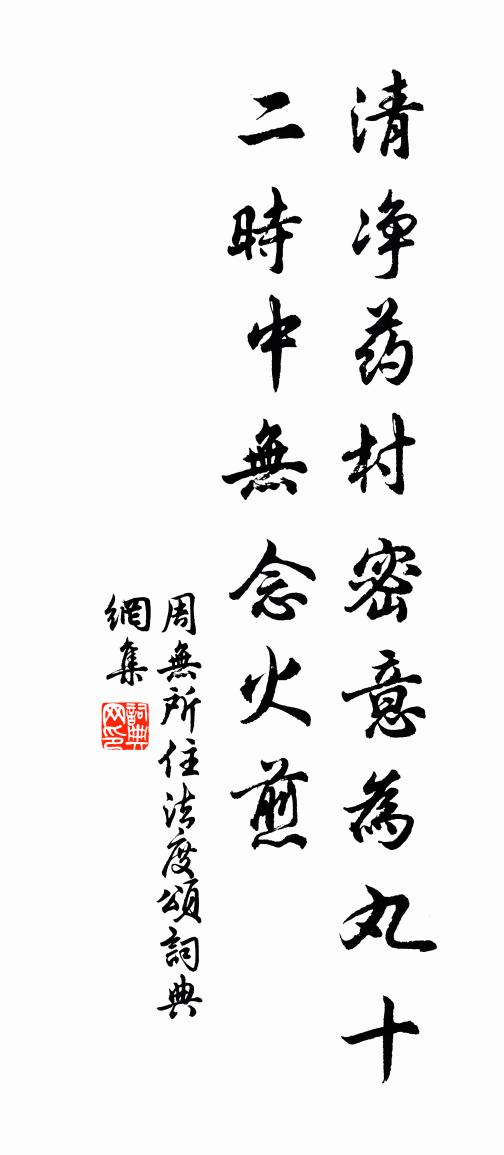 清净药材密意為丸十
二時中無念火煎
周無所住法度頌詞典
網集
詞典
网印